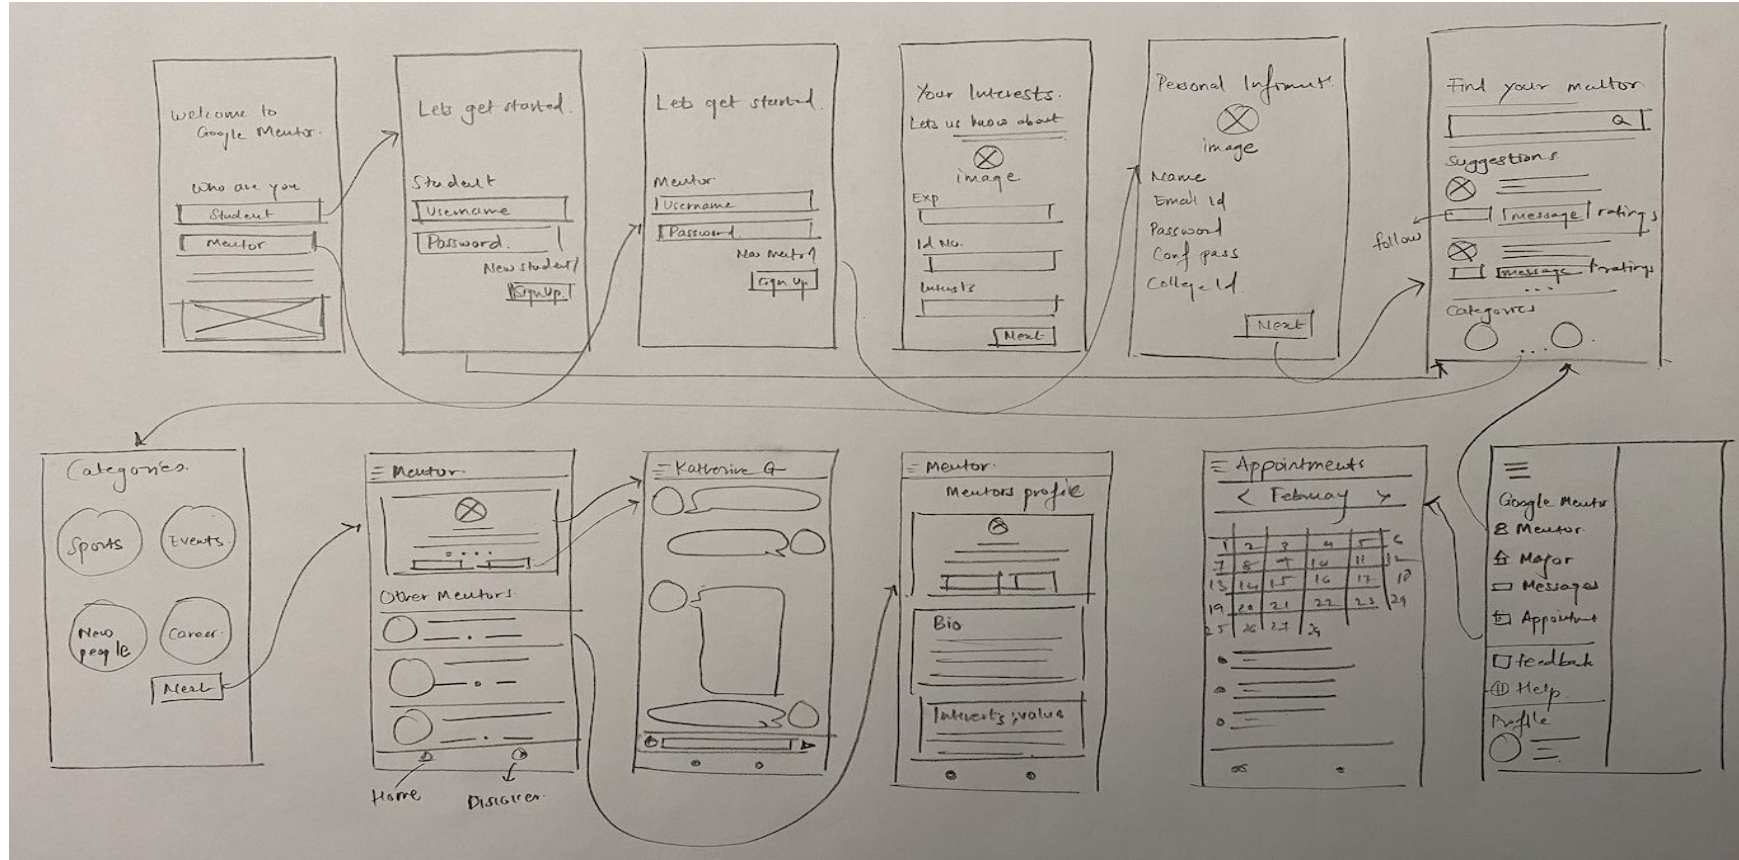 Welcome to
Google Mentor.
Who are you
Student
Mentor
Lets get started.
Student
Username
Password.
New student?
Sign Up.
Lets get started.
Mentor
Username
Password.
New mentor?
Sign Up
Your Interests.
Lets us know about
image
Exp
Id No.
Interests
Next
Personal Informat.
image
Name
Email Id
Password
Conf pass
College Id.
Next
Find your mentor.
Suggestions
message ratings
follow
message ratings
...
Categories
...
Categories.
Sports
Events.
New
people
Career.
Next
Mentor.
Other Mentors
Home
Discover.
Katherine G
Mentor.
Mentors profile
Bio
Interests, value
Appointments
< Februay >
1 2 3 4 5 6
7 8 9 10 11 12
13 14 15 16 17 18
19 20 21 22 23 24
25 26 27 28
Google Mentor
Mentor.
Major
Messages
Appointmnt
Feedback
Help.
Profile